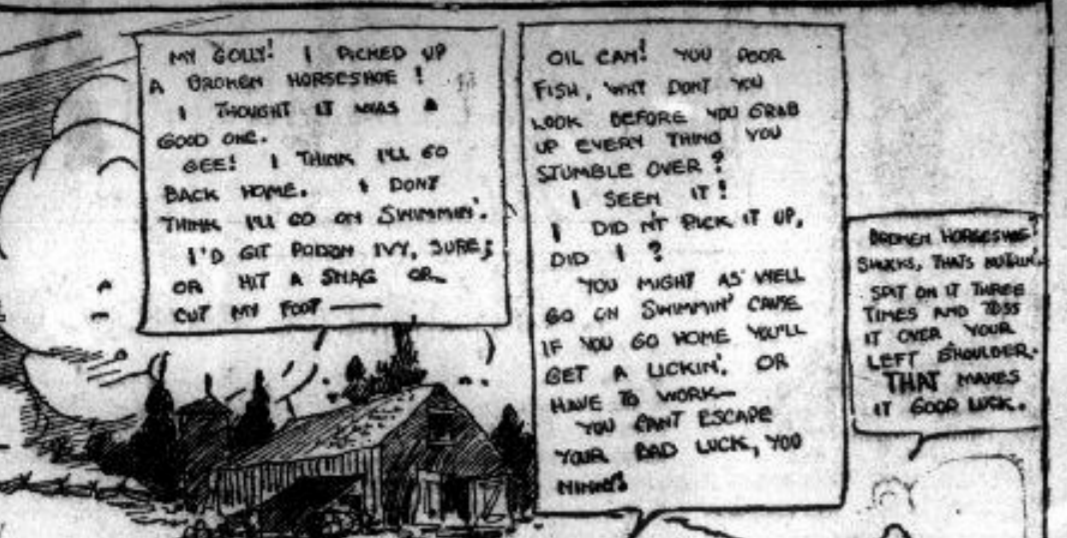 MY GOLLY! I PICKED UP
A BROKEN HORSESHOE!
I THOUGHT IT WAS A
GOOD ONE.
GEE! I THINK I'LL GO
BACK HOME. I DONT
THINK I'LL GO ON SWIMMIN'.
I'D GIT POISON IVY, SURE;
OR HIT A SNAG OR
CUT MY FOOT —
OIL CAN! YOU POOR
FISH, WHY DONT YOU
LOOK BEFORE YOU GRAB
UP EVERY THING YOU
STUMBLE OVER?
I SEEN IT!
I DID N'T PICK IT UP,
DID I?
YOU MIGHT AS WELL
GO ON SWIMMIN' CAUSE
IF YOU GO HOME YOU'LL
GET A LICKIN'. OR
HAVE TO WORK—
YOU CANT ESCAPE
YOUR BAD LUCK, YOU
NINNY!
BROKEN HORSESHOE!
SHUCKS, THATS NUTHIN'.
SPIT ON IT THREE
TIMES AND TOSS
IT OVER YOUR
LEFT SHOULDER.
THAT MAKES
IT GOOD LUCK.